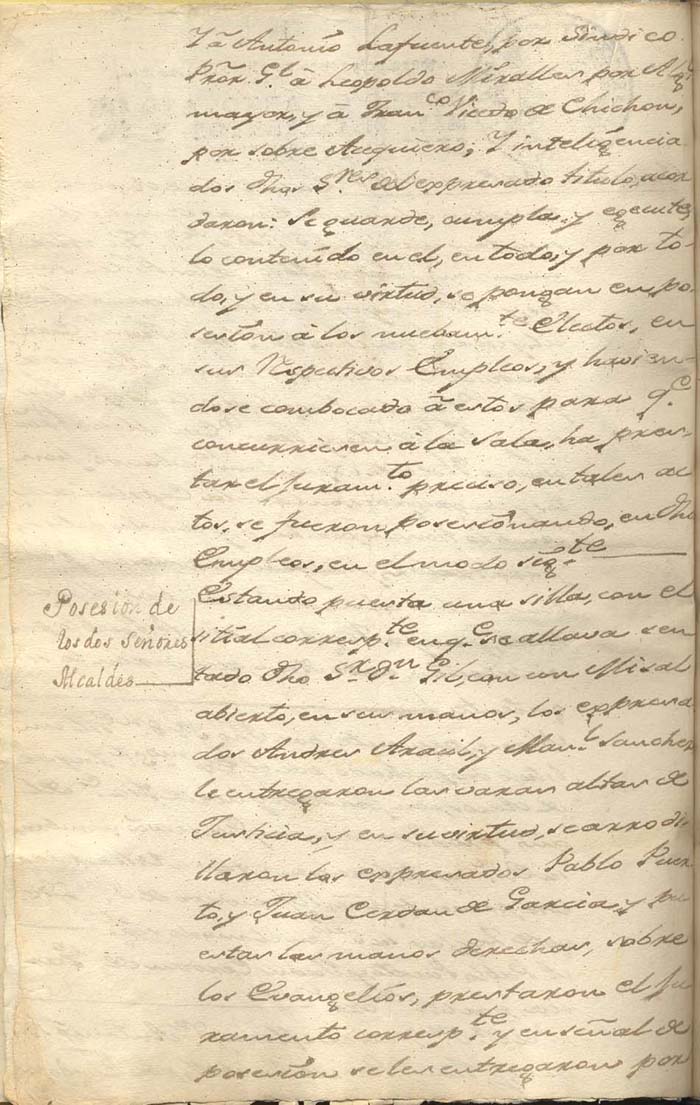 Y à Antonio Lafuente, por Sindico
Pròr. G.l à Leopoldo Miralles por Alg.l
mayor, y à Fran.co Vicedo de Chichon,
por sobre Acequiero; Y inteligencia
dos dhos S.res del expresado titulo, acor
daron: Se guarde, cumpla, y egecute
lo contenido en el, en todo, y por to
do, y en su virtud, se pongan en po
sesion à los nuebam.te Electos, en
sus Respectivos Empleos, y havien
dose combocado à estos para q.e
concurriesen à la Sala, ha pres
tar el Juram.to preciso, en tales ac
tos, se fueron posesionando, en dho
Empleos, en el modo sig.te
Posesion de
los dos Señores
Alcaldes
Estando puesta una silla, con el
sitial corresp.te en q.e se allava sen
tado dho S.r D.n Gil, con un Misal
abierto, en sus manos, los expresa
dos Andres Aracil, y Man.l Sanchez
le entregaron las varas altas de
Justicia, y en su virtud, se arrodi
llaron los expresados Pablo Puer
to, y Juan Cerdan de Garcia, y pu
estas las manos derechas, sobre
los Evangelios, prestaron el Ju
ramento corresp.te y en señal de
posesion se les entregaron por